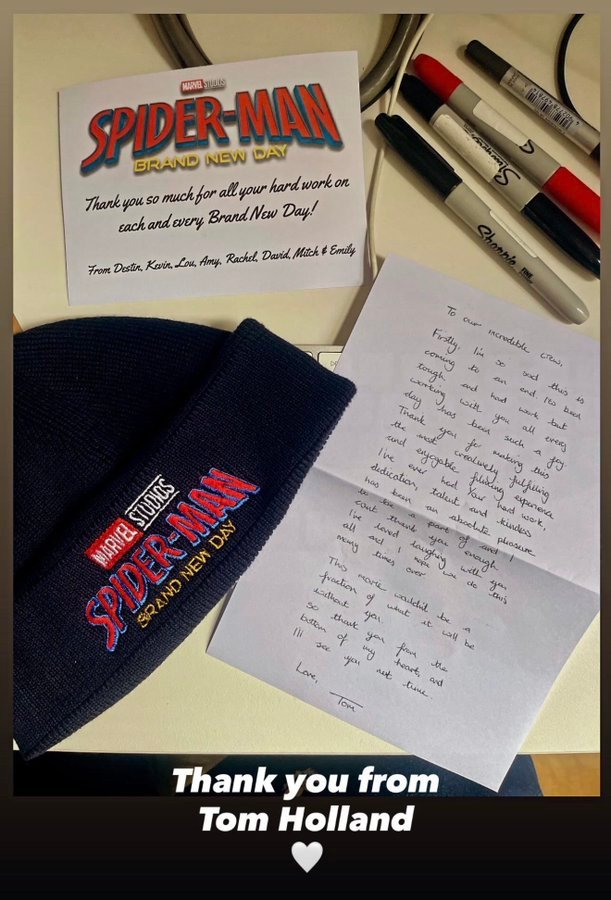 MARVEL STUDIOS
SPIDER-MAN
BRAND NEW DAY
Thank you so much for all your hard work on
each and every Brand New Day!
From Destin, Kevin, Lou, Amy, Rachel, David, Mitch & Emily
Sharpie
Sharpie
FINE
To our incredible crew,
Firstly, I'm so sad this is
coming to an end. It's been
tough and hard work but
working with you all every
day has been such a joy
Thank you for making this
the most creatively fulfilling
and enjoyable filming experience
I've ever had. Your hard work,
dedication, talent and kindness
has been an absolute pleasure
to be a part of and I
cant thank you enough.
I've loved laughing with you
all and I hope we do this
many times over
This movie wouldn't be a
fraction of what it will be
without you.
so thank you from the
bottom of my heart, and
I'll see you next time.
Love,
Tom
MARVEL STUDIOS
SPIDER-MAN
BRAND NEW DAY
Thank you from
Tom Holland